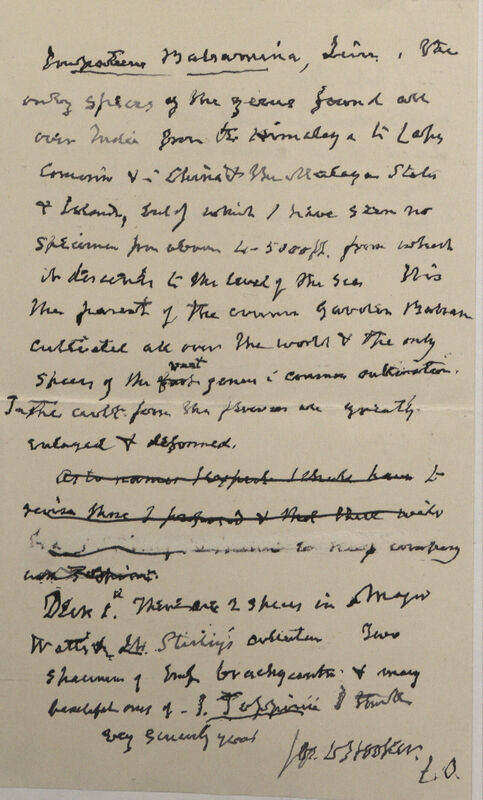 Impatiens Balsamina, Linn. The
only species of the genus found all
over India from the Himalaya to Cape
Comorin & China & the Malayan States
& Islands, but of which I have seen no
specimen from above 4-5000 ft. from which
it descends to the level of the sea It is
the parent of the common Garden Balsam
cultivated all over the world & the only
species of the vast genus in common cultivation.
In the cult. form the flowers are greatly
enlarged & deformed.
As to names I expect I shall have to
revise those I proposed & that there will
to keep company
Dec 1st. There are 2 species in Major
& Lt. Stirling's collection Two
specimens of Imp. brachycentra & many
beautiful ones of I. I think
very sincerely yours
Jos. D Hooker.